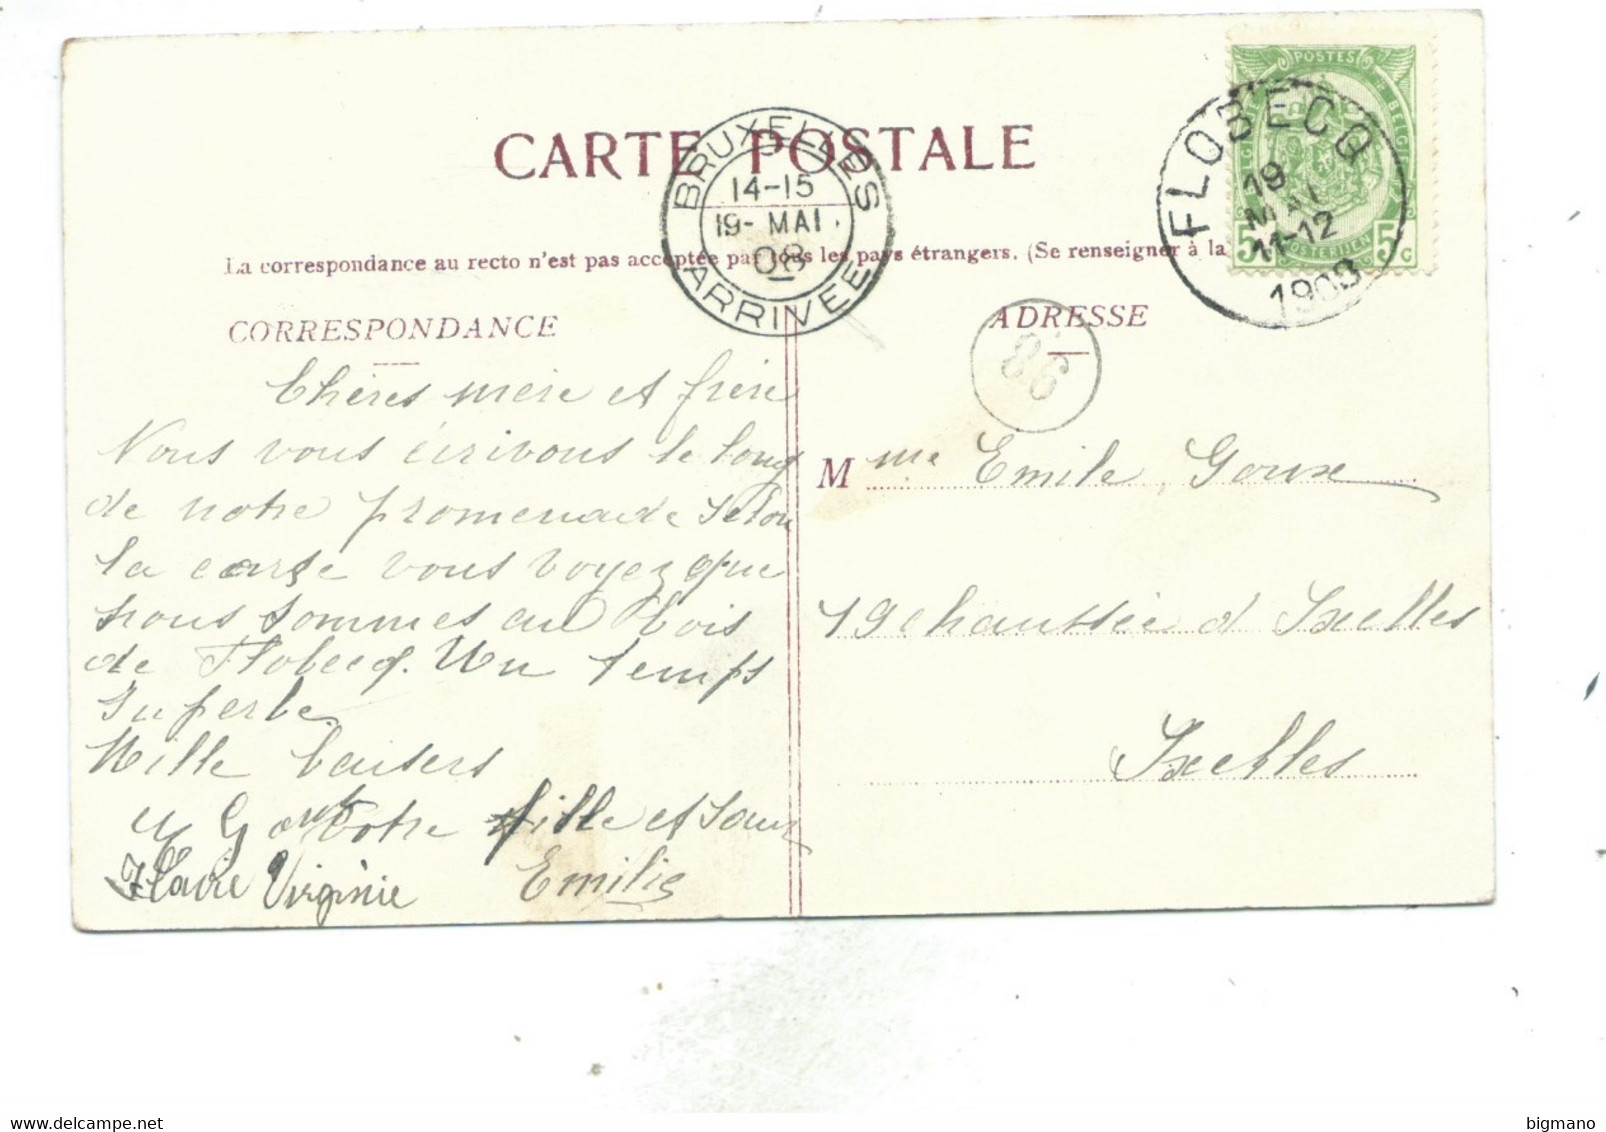 POSTES
BELGIË
5 POSTERIJEN 5c
FLOBECQ
19
MAI
11-12
1908
CARTE POSTALE
BRUXELLES
14-15
19- MAI
08
ARRIVÉE
La correspondance au recto n'est pas acceptée par tous les pays étrangers. (Se renseigner à la
CORRESPONDANCE
ADRESSE
86
Chères mère et frère
Nous vous écrivons le long
de notre promenade Selon
la carte vous voyez que
nous sommes au bois
de Flobecq. Un temps
superbe
Mille baisers
Votre fille et Sœur
Flavie Virginie Emilie
Mme Emile Goux
19 chaussée d Ixelles
Ixelles
bigmano